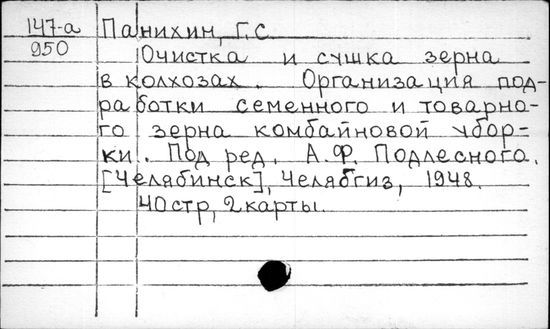 147-а Панихин, Г.С
950
Очистка и сушка зерна
в колхозах. Организация под-
работки семенного и товарно-
го зерна комбайновой убор-
ки. Под ред. А.Ф. Подлесного.
[Челябинск], Челябгиз, 1948.
40стр, 2карты.